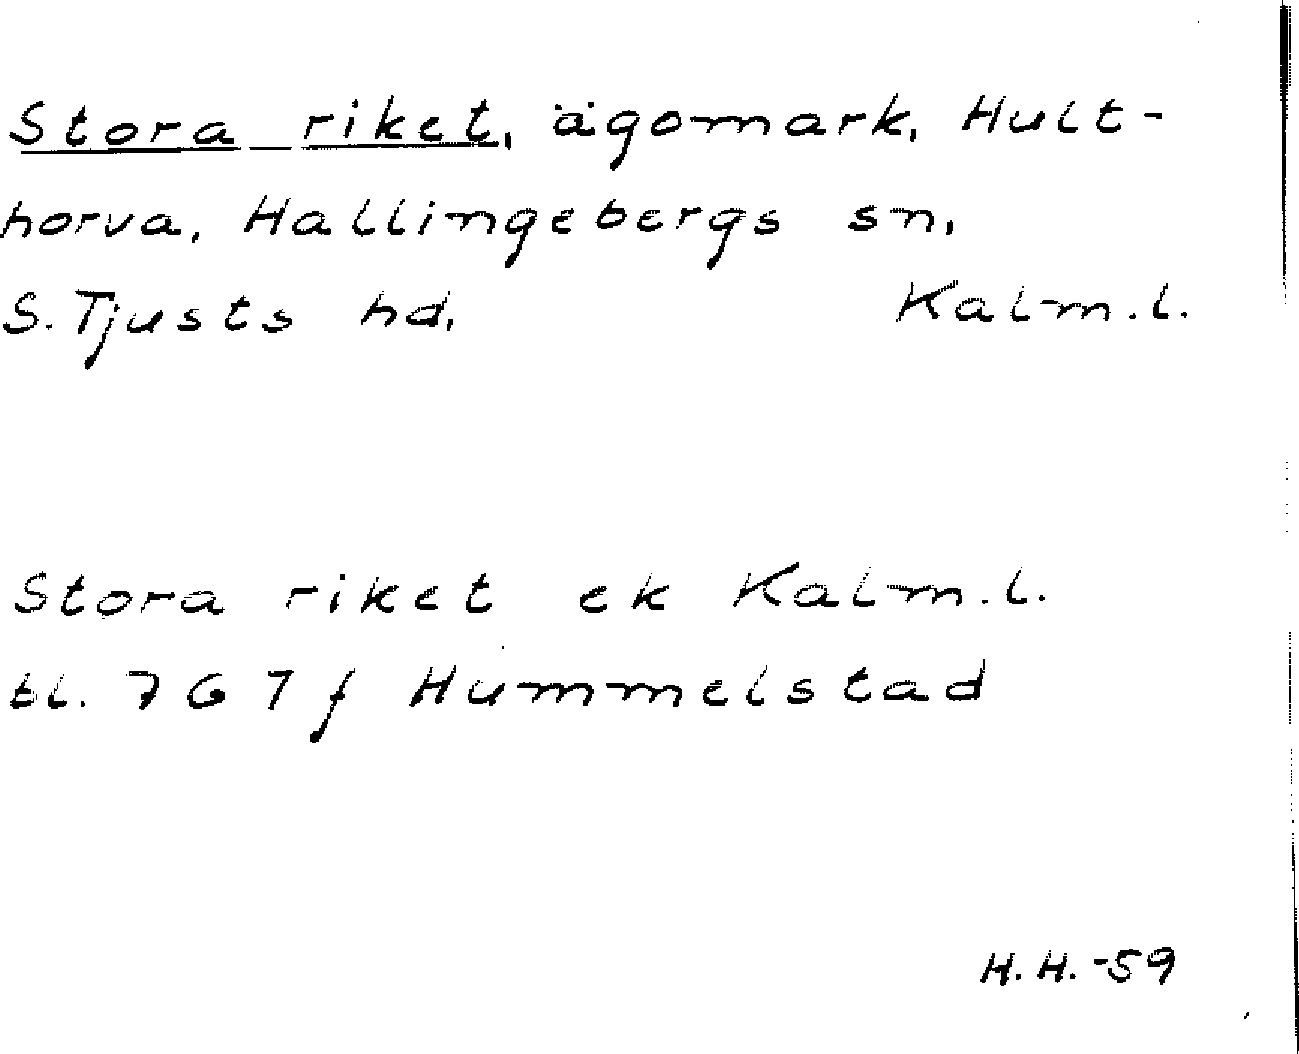 Stora riket, ägomark, Hult-
horva, Hallingebergs sn,
S. Tjusts hd, Kalm. l.
Stora riket ek Kalm. l.
bl. 7 G 7 f Hummelstad
H. H. -59